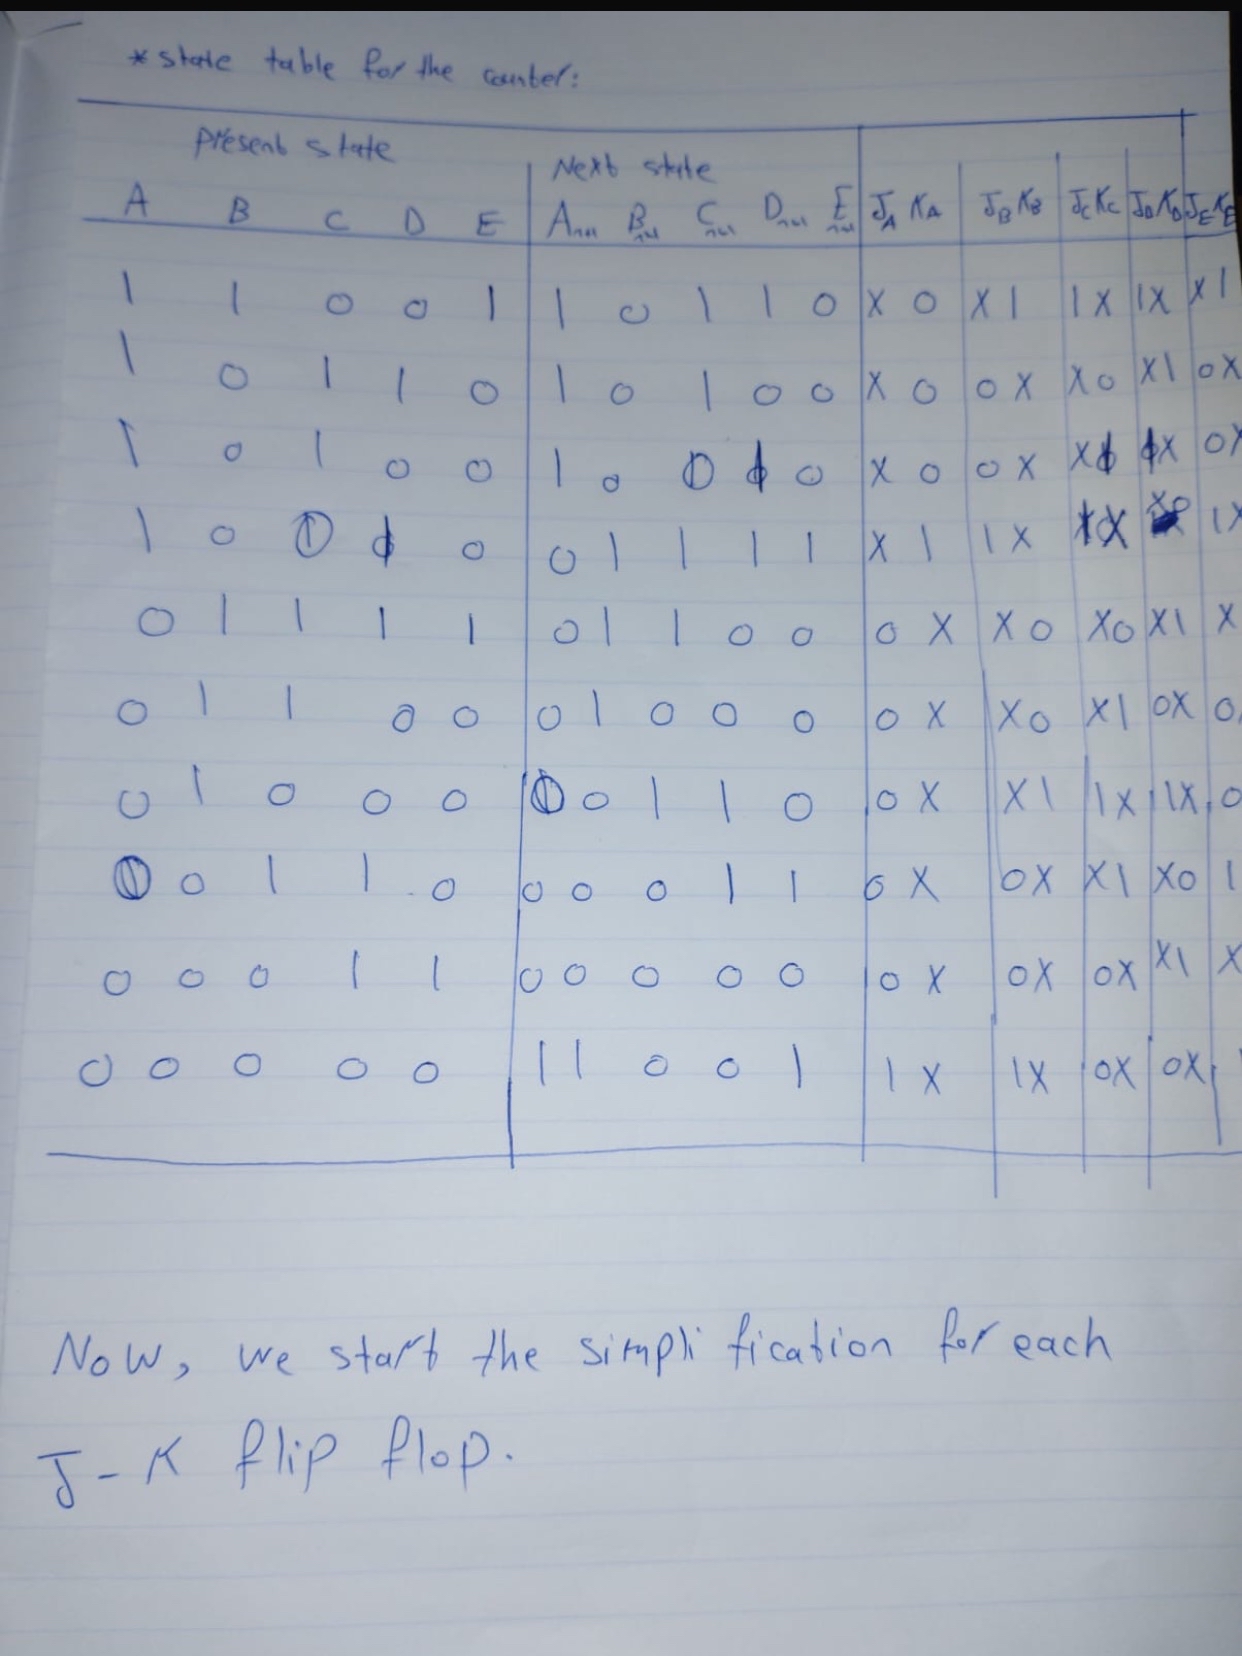 * state table for the counter:
Present state Next state
A B C D E A n+1 B n+1 C n+1 D n+1 E n+1 JA KA JB KB JC KC JD KD JE KE
1 1 0 0 1 1 0 1 1 0 X 0 X 1 1 X 1X X 1
1 0 1 1 0 1 0 1 0 0 X 0 0 X X 0 X1 0X
1 0 1 0 0 1 0 0 X 0 0 X X X 0X
1 0 0 0 1 1 1 1 X 1 1 X X 1X
0 1 1 1 1 0 1 1 0 0 0 X X 0 X0 X1 X
0 1 1 0 0 0 1 0 0 0 0 X X0 X1 0X 0
0 1 0 0 0 0 1 1 0 0 X X1 1X 1X 0
0 1 1 0 0 0 0 1 1 0 X 0X X1 X0 1
0 0 0 1 1 0 0 0 0 0 0 X 0X 0X X1 X
0 0 0 0 0 1 1 0 0 1 1 X 1X 0X 0X
Now, we start the simplification for each
J-K flip flop.